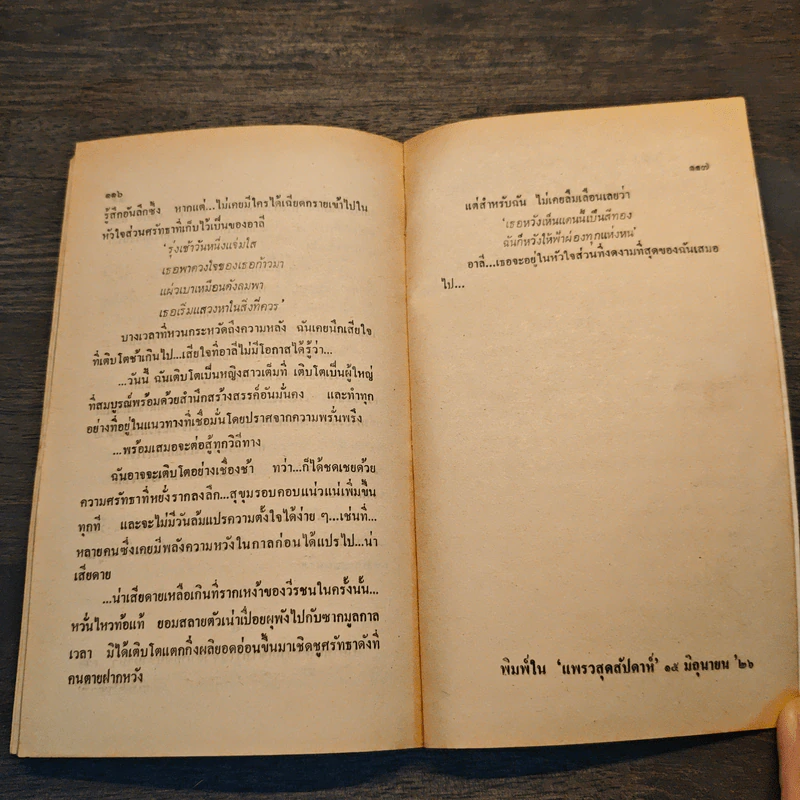 ๑๑๖
รู้สึกอันลึกซึ้ง หากแต่...ไม่เคยมีใครได้เฉียดกรายเข้าไปใน
หัวใจส่วนศรัทธาที่เก็บไว้เป็นของอาลี
'รุ่งเช้าวันหนึ่งแจ่มใส
เธอพาดวงใจของเธอก้าวมา
แผ่วเบาเหมือนดังลมพา
เธอเริ่มแสวงหาในสิ่งที่ควร'
บางเวลาที่หวนกระหวัดถึงความหลัง ฉันเคยนึกเสียใจ
ที่เติบโตช้าเกินไป...เสียใจที่อาลีไม่มีโอกาสได้รู้ว่า...
...วันนี้ ฉันเติบโตเป็นหญิงสาวเต็มที่ เติบโตเป็นผู้ใหญ่
ที่สมบูรณ์พร้อมด้วยสำนึกสร้างสรรค์อันมั่นคง และทำทุก
อย่างที่อยู่ในแนวทางที่เชื่อมั่นโดยปราศจากความพรั่นพรึง
...พร้อมเสมอจะต่อสู้ทุกวิถีทาง
ฉันอาจจะเติบโตอย่างเชื่องช้า ทว่า...ก็ได้ชดเชยด้วย
ความศรัทธาที่หยั่งรากลงลึก...สุขุมรอบคอบแน่วแน่เพิ่มขึ้น
ทุกที และจะไม่มีวันล้มแปรความตั้งใจได้ง่าย ๆ...เช่นที่...
หลายคนซึ่งเคยมีพลังความหวังในกาลก่อนได้แปรไป...น่า
เสียดาย
...น่าเสียดายเหลือเกินที่รากเหง้าของวีรชนในครั้งนั้น...
หวั่นไหวท้อแท้ ยอมสลายตัวเน่าเปื่อยผุพังไปกับซากมูลกาล
เวลา มิได้เติบโตแตกกิ่งผลิยอดอ่อนขึ้นมาเชิดชูศรัทธาดังที่
คนตายฝากหวัง
๑๑๗
แต่สำหรับฉัน ไม่เคยลืมเลือนเลยว่า
'เธอหวังเห็นแดนนี้เป็นสีทอง
ฉันก็หวังให้ฟ้าผ่องทุกแห่งหน'
อาลี...เธอจะอยู่ในหัวใจส่วนที่งดงามที่สุดของฉันเสมอ
ไป...
พิมพ์ใน 'แพรวสุดสัปดาห์' ๑๕ มิถุนายน '๒๖